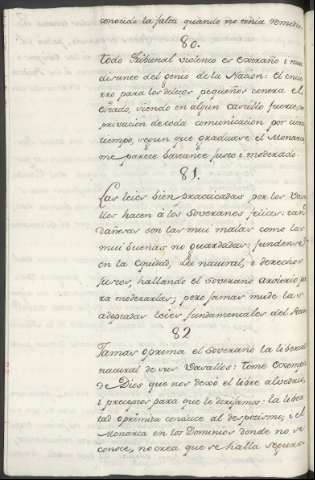 conocido la falta quando no tenia remedio.
80.
Todo Tribunal violento es extraño i mui
distante del genio de la Nacion: el encie
rro para los delitos pequeños contra el
Estado, siendo en algun castillo fuerte, con
privacion de toda comunicacion por un
tiempo, segun que graduare el Monarca
me parece bastante justo i moderado.
81.
Las leies bien practicadas por los Vasa
llos hacen á los Soveranos felices: tan
dañosas son las mui malas como las
mui buenas no guardadas: fundense
en la equidad, Lei natural, i derechos
justos, hallando el Soverano arvitrio pa
ra moderarlas; pero jamas mude las
adaptadas leies fundamentales del Reino
82
Jamas oprima el Soverano la libertad
natural de sus Vasallos: tome exemplo
de Dios que nos dexó el libre alvedrio,
i preceptos para que le dirijamos: la liber
tad oprimida conduce al despotismo, i el
Monarca en los Dominios donde no se
conoce, no crea que se halla seguro